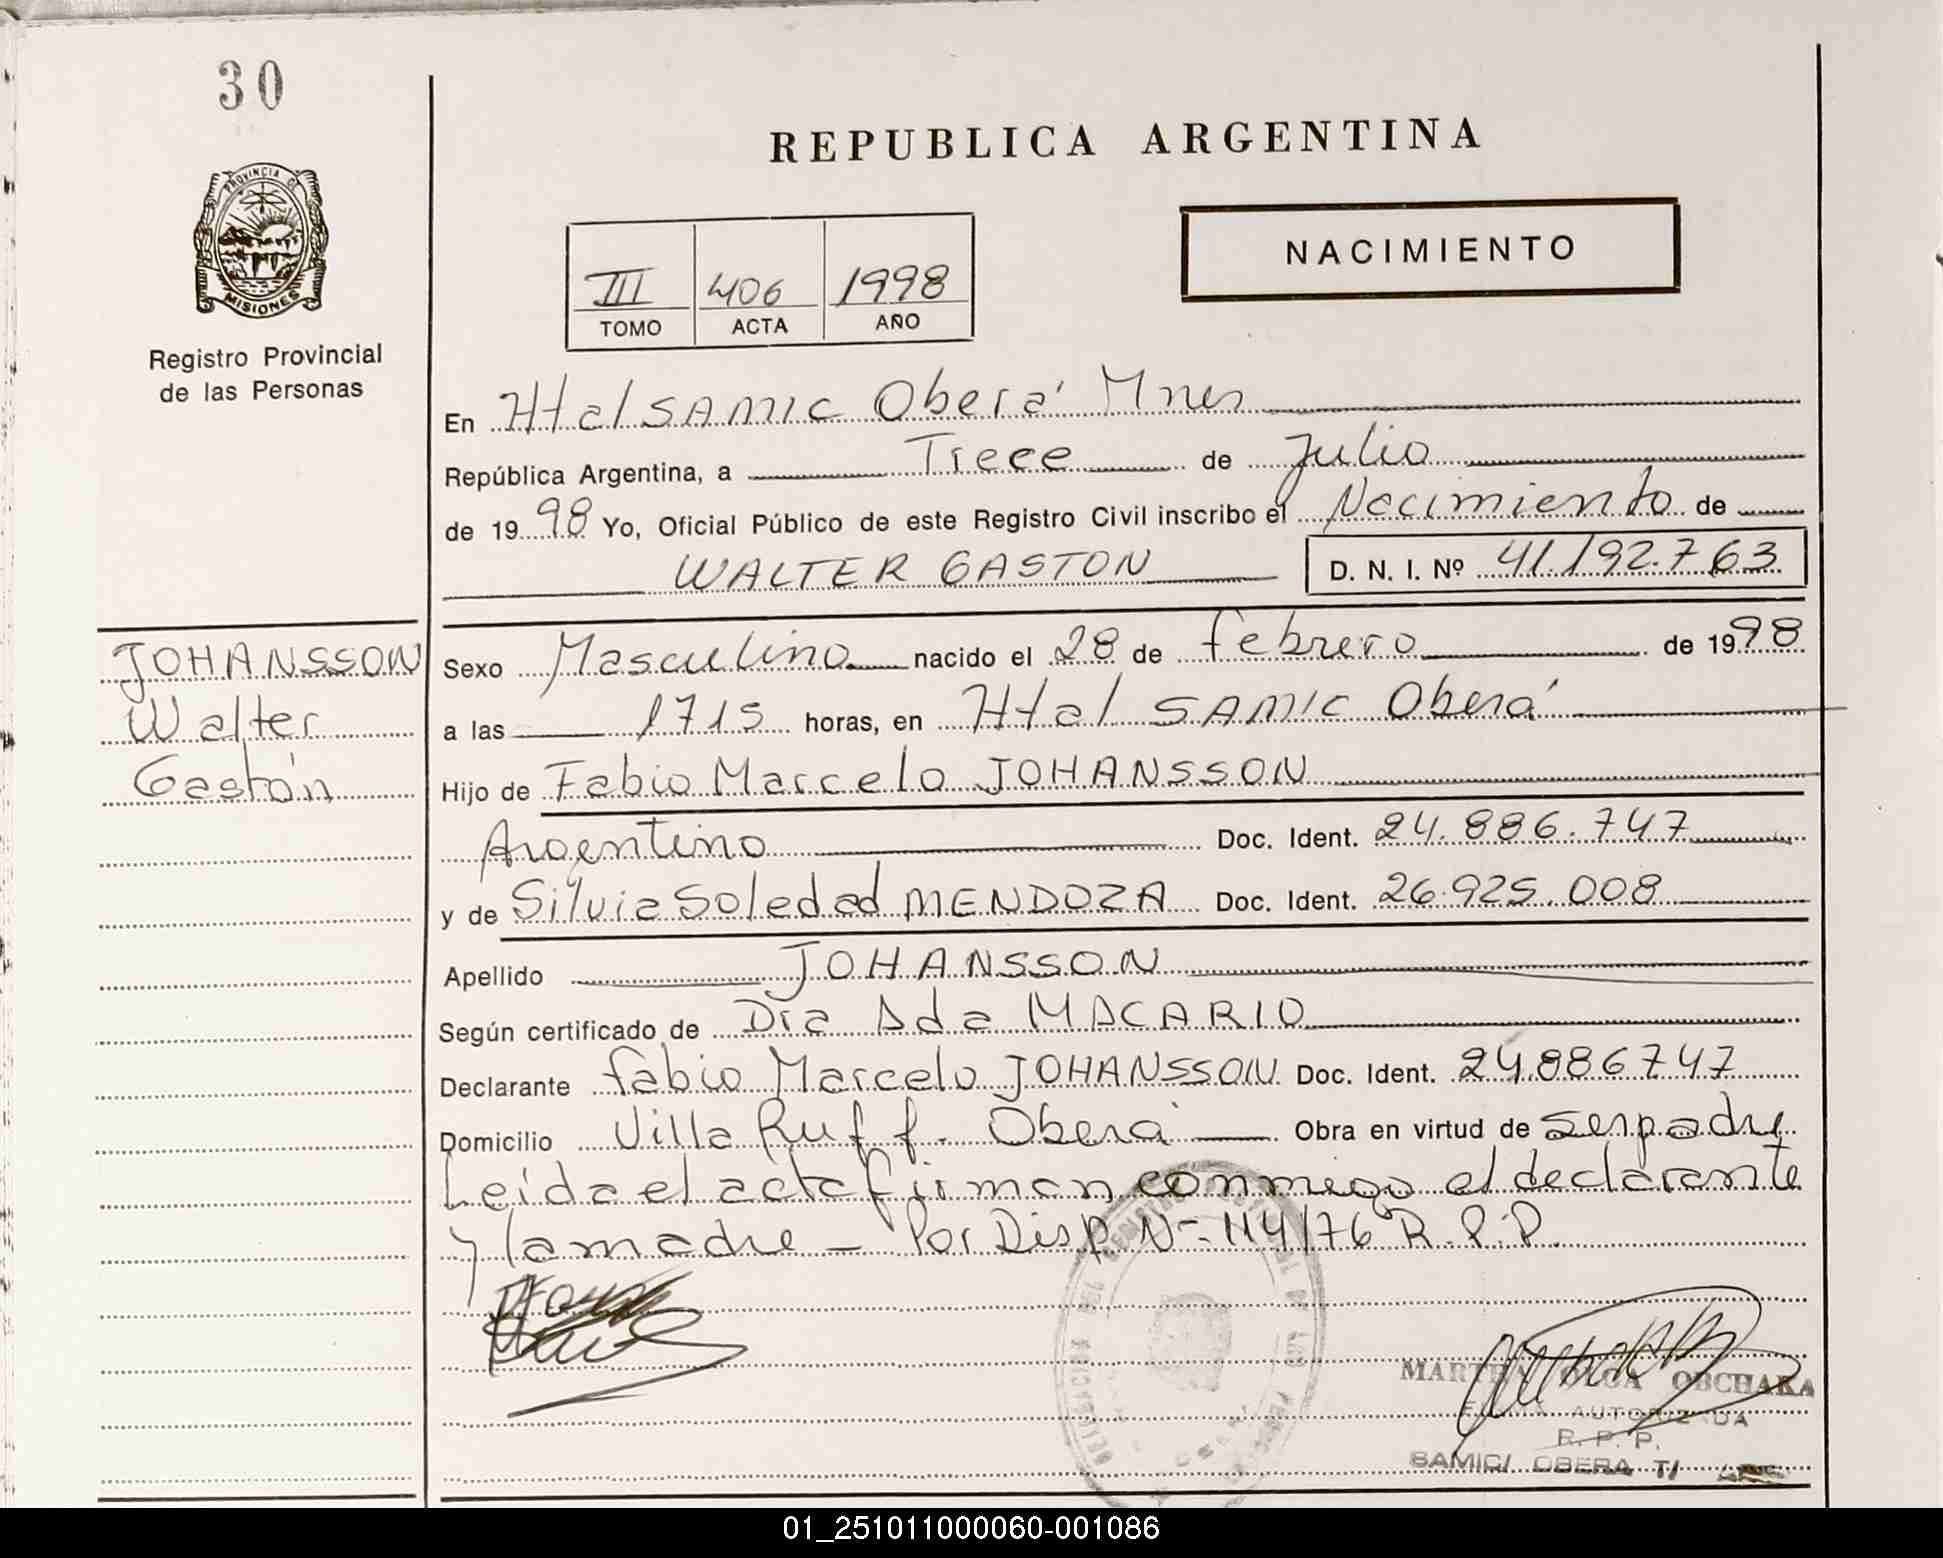 30
REPUBLICA ARGENTINA
PROVINCIA DE
MISIONES
Registro Provincial
de las Personas
III 406 1998
TOMO ACTA AÑO
NACIMIENTO
En Htal SAMIC Oberá Mnes
República Argentina, a Trece de Julio
de 1998 Yo, Oficial Público de este Registro Civil inscribo el Nacimiento de
WALTER GASTON D. N. I. Nº 41.192.763
JOHANSSON
Walter
Gastón
Sexo Masculino nacido el 28 de febrero de 1998
a las 1715 horas, en Htal SAMIC Oberá
Hijo de Fabio Marcelo JOHANSSON
Argentino Doc. Ident. 24.886.747
y de Silvia Soledad MENDOZA Doc. Ident. 26.925.008
Apellido JOHANSSON
Según certificado de Dra Ada MACARIO
Declarante Fabio Marcelo JOHANSSON Doc. Ident. 24.886747
Domicilio Villa Ruff. Oberá Obra en virtud de ser padre
Leída el acta firman conmigo el declarante
y la madre - Por Disp. Nº 114/76 R.P.P.
MARTHA OLGA OBCHAKA
FIRMA AUTORIZADA
R. P. P.
SAMIC/ OBERA T/
01_251011000060-001086